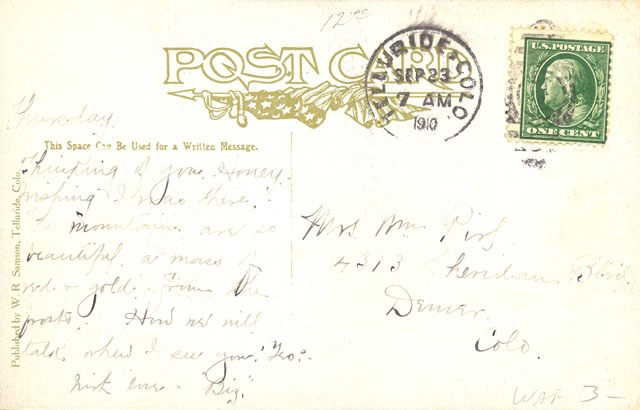 12
POST CARD
TELLURIDE, COLO.
SEP 23
7 AM
1910
U.S. POSTAGE
ONE CENT
Thursday
This Space Can Be Used for a Written Message.
Thinking of you Honey-
wishing I was there.
The mountains are so
beautiful, a mass of
red + gold from the
frosts. How we will
talk when I see you.
With love - "Big"
Mrs Wm
4313 Sheridan Blvd.
Denver
Colo.
Published by W. R. Samson, Telluride, Colo.
3-